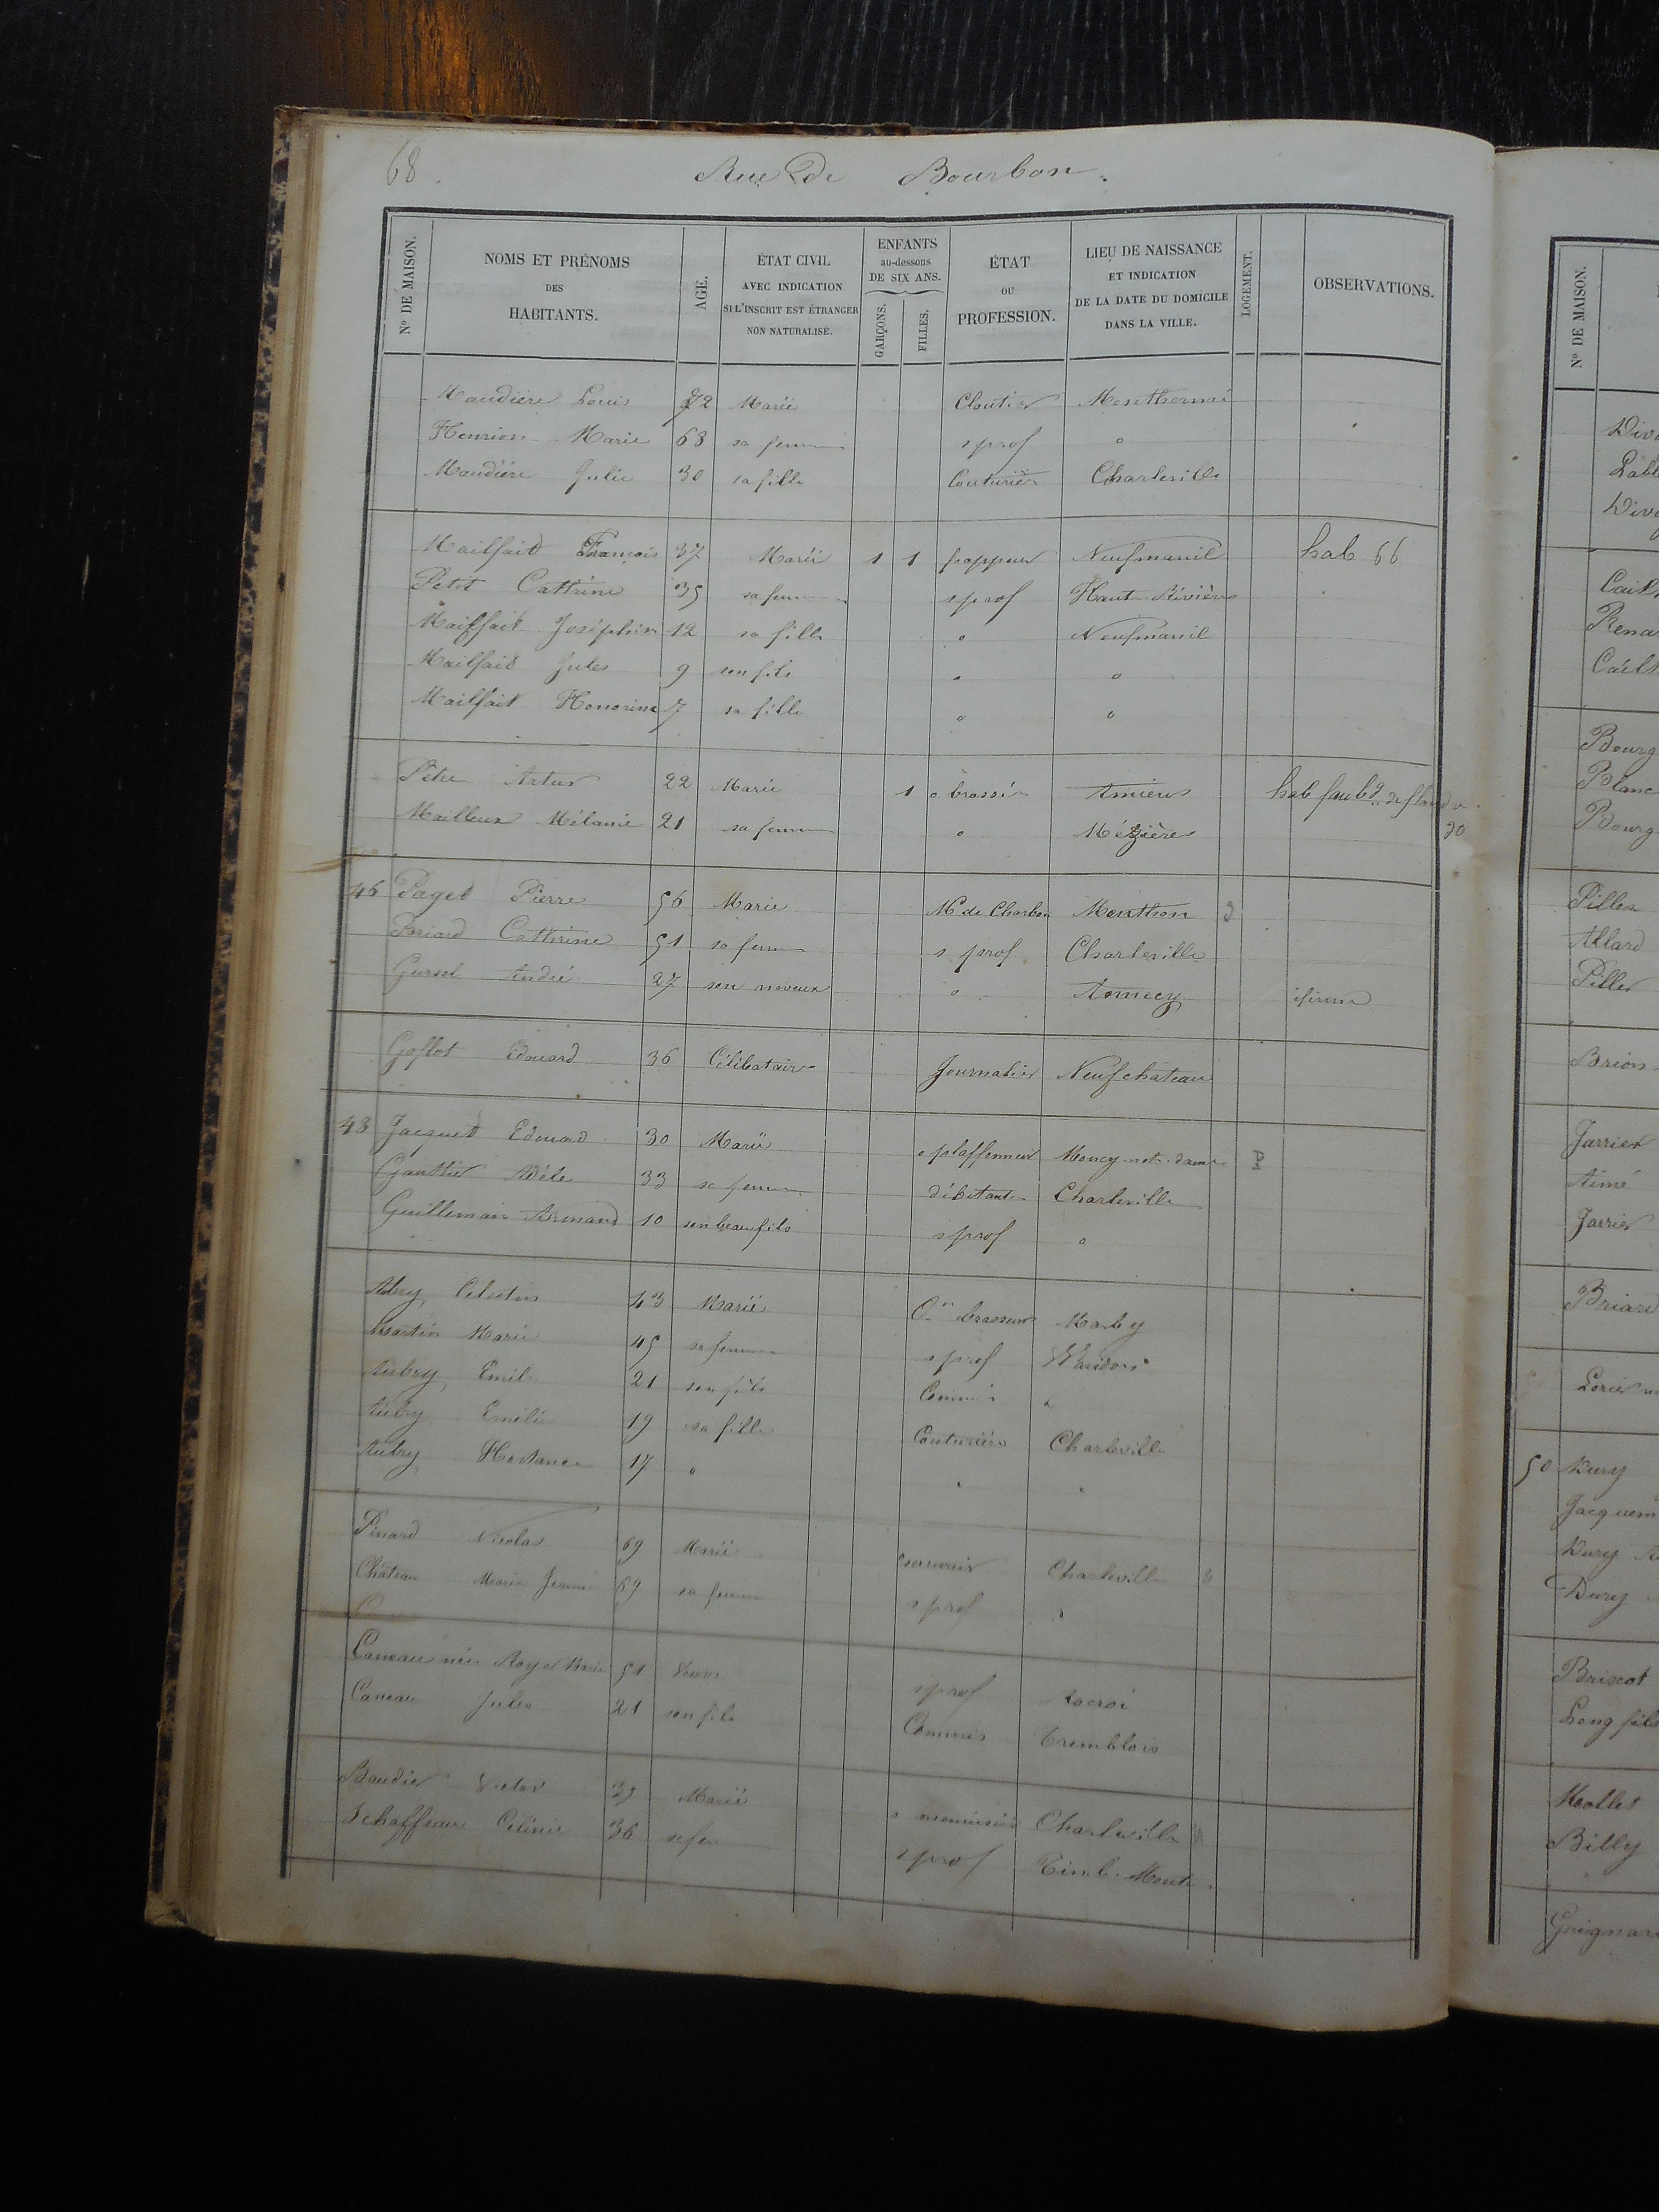 68.
Rue De Bourbon.
N° DE MAISON. NOMS ET PRÉNOMS DES HABITANTS. AGE. ÉTAT CIVIL AVEC INDICATION SI L'INSCRIT EST ÉTRANGER NON NATURALISÉ. ENFANTS au-dessous DE SIX ANS. GARÇONS. FILLES. ÉTAT OU PROFESSION. LIEU DE NAISSANCE ET INDICATION DE LA DATE DU DOMICILE DANS LA VILLE. LOGEMENT. OBSERVATIONS.
Maudière Louis 72 Marié Cloutier Monthermé
Henrion Marie 63 sa femme s prof o
Maudière Julie 30 sa fille Couturièr Charleville
Mailfait François 37 Marié 1 1 frappeur Neufmanil hab 66
Petit Cattrine 35 sa femme s prof Haut Rivière
Mailfait Joséphin 12 sa fille o Neufmanil
Mailfait Jules 9 son fils o o
Mailfait Honorine 7 sa fille o o
Pètre Artur 22 Marié 1 o brossier Amiens hab faubg de flandre 30
Mailleux Mélanie 21 sa femme o Mézières
46 Paget Pierre 56 Marié Md de Charbon Menthon 3
Poriard Cattrine 51 sa femme s prof Charleville
Gursel André 27 son neveux o Annecy
Goflot Edouard 36 Célibataire Journalier Neufchateau
48 Jacquet Edouard 30 Marié o plaffonneur Moncy notr dame
Gauthier Adèle 33 sa femme débitante Charleville
Guillemain Armand 10 son beau fils s prof o
Aubry Célestin 43 Marié Oer brasseur Marby
Martin Marie 45 sa femme s prof
Aubry Emile 21 son fils Commis
Aubry Emilie 19 sa fille Couturière Charleville
Aubry Hortance 17 o
Pinard Nicolas 69 Marié serrurier Charleville
Château Marie Jeanne 69 sa femme s prof
Caneau née Royer Marie 51 Veuve s prof Rocroi
Caneau Jules 21 son fils Commis Tremblois
Baudier Victor 39 Marié o menuisier Charleville
Schaffeaux Célinie 36 sa fem s prof
N° DE MAISON.
Pillen
Allard
Piller
Brion
Jarrier
Aimé
Jarrier
Briard
50 Dury
Jacquem
Dury
Dury
Briscot
Long fils
Mollet
Billy
Grignar